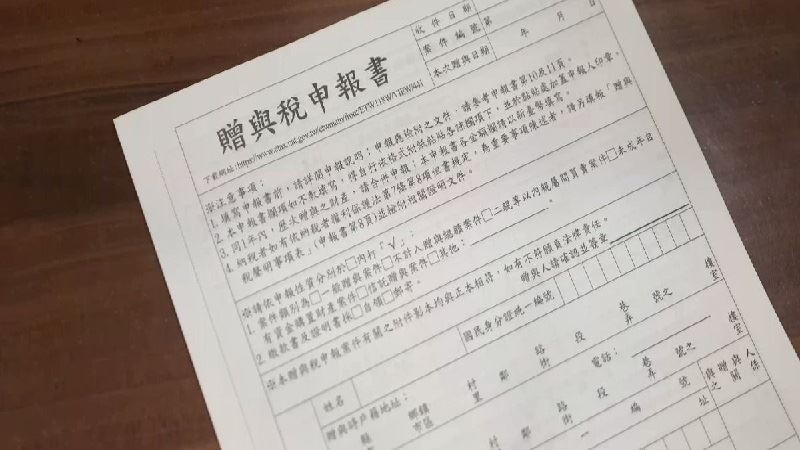 贈與稅申報書
收件日期
案件編號 第 號
本次贈與日期 年 月 日
※注意事項：
1. 填寫申報書前，請詳閱申報說明；申報應檢附之文件，請參考申報書第10及11頁。
2. 本申報書欄項如不敷填寫，得自行依格式附紙黏貼各該欄項下，並於黏貼處加蓋申報人印章。
3. 同1年內，歷次贈與之財產，請合併申報；本申報書各金額欄請以新臺幣填寫。
4. 納稅者如有依納稅者權利保護法第7條第8項但書規定，為重要事項陳述者，請另填報「贈與
稅聲明事項表」(申報書第8頁)並檢附相關證明文件。
※請依申報性質分別於□內打「√」：
1. 案件類別為□一般贈與案件□不計入贈與總額案件□二親等以內親屬間買賣案件□未成年人
有資金購置財產案件□信託贈與案件□其他：
2. 繳款書及證明書採□自領□郵寄。
※本贈與稅申報案件有關之附件影本均與正本相符，如有不符願負法律責任。
贈與人請確認並簽章
姓名
國民身分證統一編號
贈與時戶籍地址： 縣市 鄉鎮市區 村里 鄰 路街 段 巷弄 號之 樓室
電話：
村 鄰 路街 段 巷弄 號之 樓室
一 編 號
址
與贈與人之關係